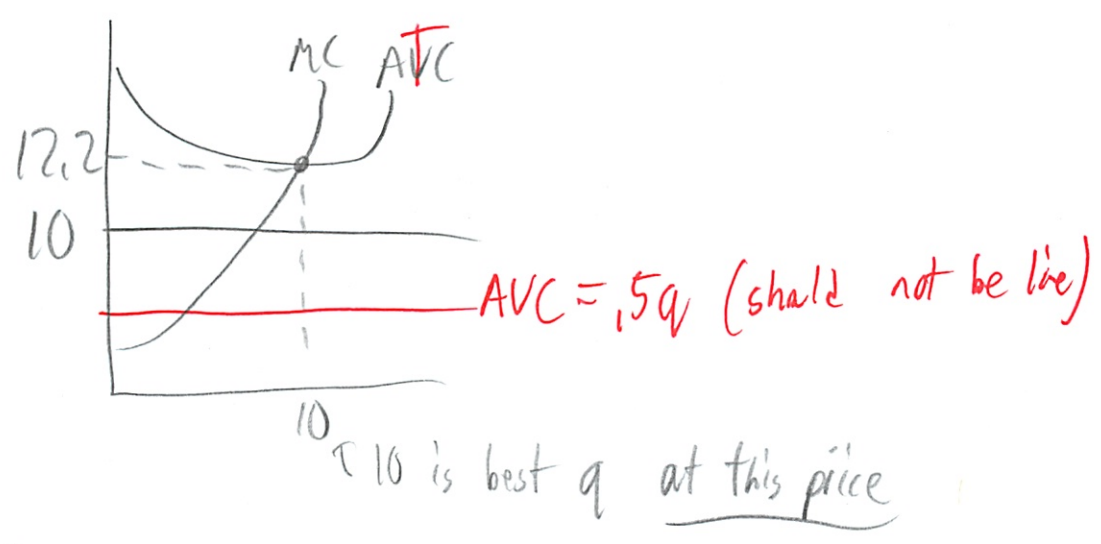 MC ATC
12.2
10
AVC = .5q (should not be line)
10
↑ 10 is best q at this price